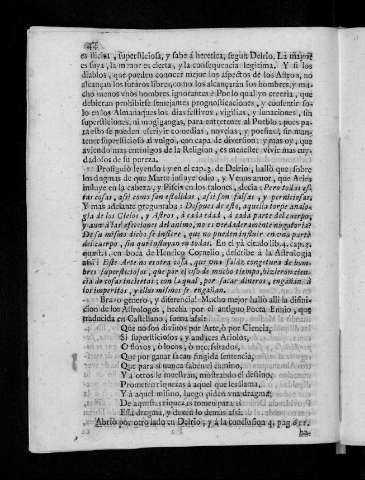 44
es ilicita, supersticiosa, y sabe á heretica, segun Delrio. La mayor
es suya, la menor es cierta, y la consequencia legitima. Y si los
diablos, que pueden conocer mejor los aspectos de los Astros, no
alcançan los futuros libres, como los alcançarán los hombres, y mu-
cho menos unos hombres ignorantes? Por lo qual yo creeria, que
debieran prohibirse semejantes prognosticaciones, y consentir so-
lo en los Almanaques los dias festivos, vigilias, y lunaciones, sin
supersticiones, ni mogigangas, para entretener al Pueblo; pues pa-
ra esto se pueden escrivir comedias, novelas, y poesias, sin man-
tener supersticioso al vulgo, con capa de diversion; y mas oy, que
aviendo mas enemigos de la Religion, es menester vivir mas cuy-
dadosos de su pureza.
Prosiguió leyendo; y en el cap. 3. de Delrio, halló que, sobre
los dogmas de que Marte influye odio, y Venus amor, que Aries
influye en la cabeza, y Piscis en los talones, decia: Pero todas es-
tas cosas, assi como son estolidas, assi son falsas, y perniciosas;
Y mas adelante preguntaba: Despues de esto, aquella torpe analo-
gia de los Cielos, y Astros, á cada edad, á cada parte del cuerpo,
y aun á las afecciones del animo, no es verdaderamente nugatoria?
De su mismo dicho se infiere, que no pueden influir en una parte
del cuerpo, sin que influyan en todas. En el yá citado lib. 4. cap. 3.
quæst. 1. en boca de Henrico Cornelio, describe á la Astrologia
assi: Este Arte no es otra cosa, que una falàz congetura de hom-
bres supersticiosos, que por el uso de mucho tiempo, hizieron cien-
cia de cosas inciertas; con la qual, por sacar dineros, engañan á
los imperitos, y ellos mismos se engañan.
Bravo genero, y diferencia! Mucho mejor halló alli la difini-
cion de los Astrologos, hecha por el antiguo Poeta Ennio, que
traducida en Castellano, suena assi:
Que no son divinos por Arte, ó por Ciencia,
Si supersticiosos, y audaces Ariolos,
O floxos, ò locos, ò necessitados,
Que por ganar sacan fingida sentencia,
Que para sì nunca saben el camino,
Y á otros le muestran, mostrando el destino,
Prometen riquezas á aquel que les llama,
Y á aquel mismo, luego piden una dragma;
De aquestas riquezas tomen para sì
Essa dragma, y den lo demas assi.
Abriò por otro lado en Delrio, y á la conclusion 4. pag. 611.
ha-